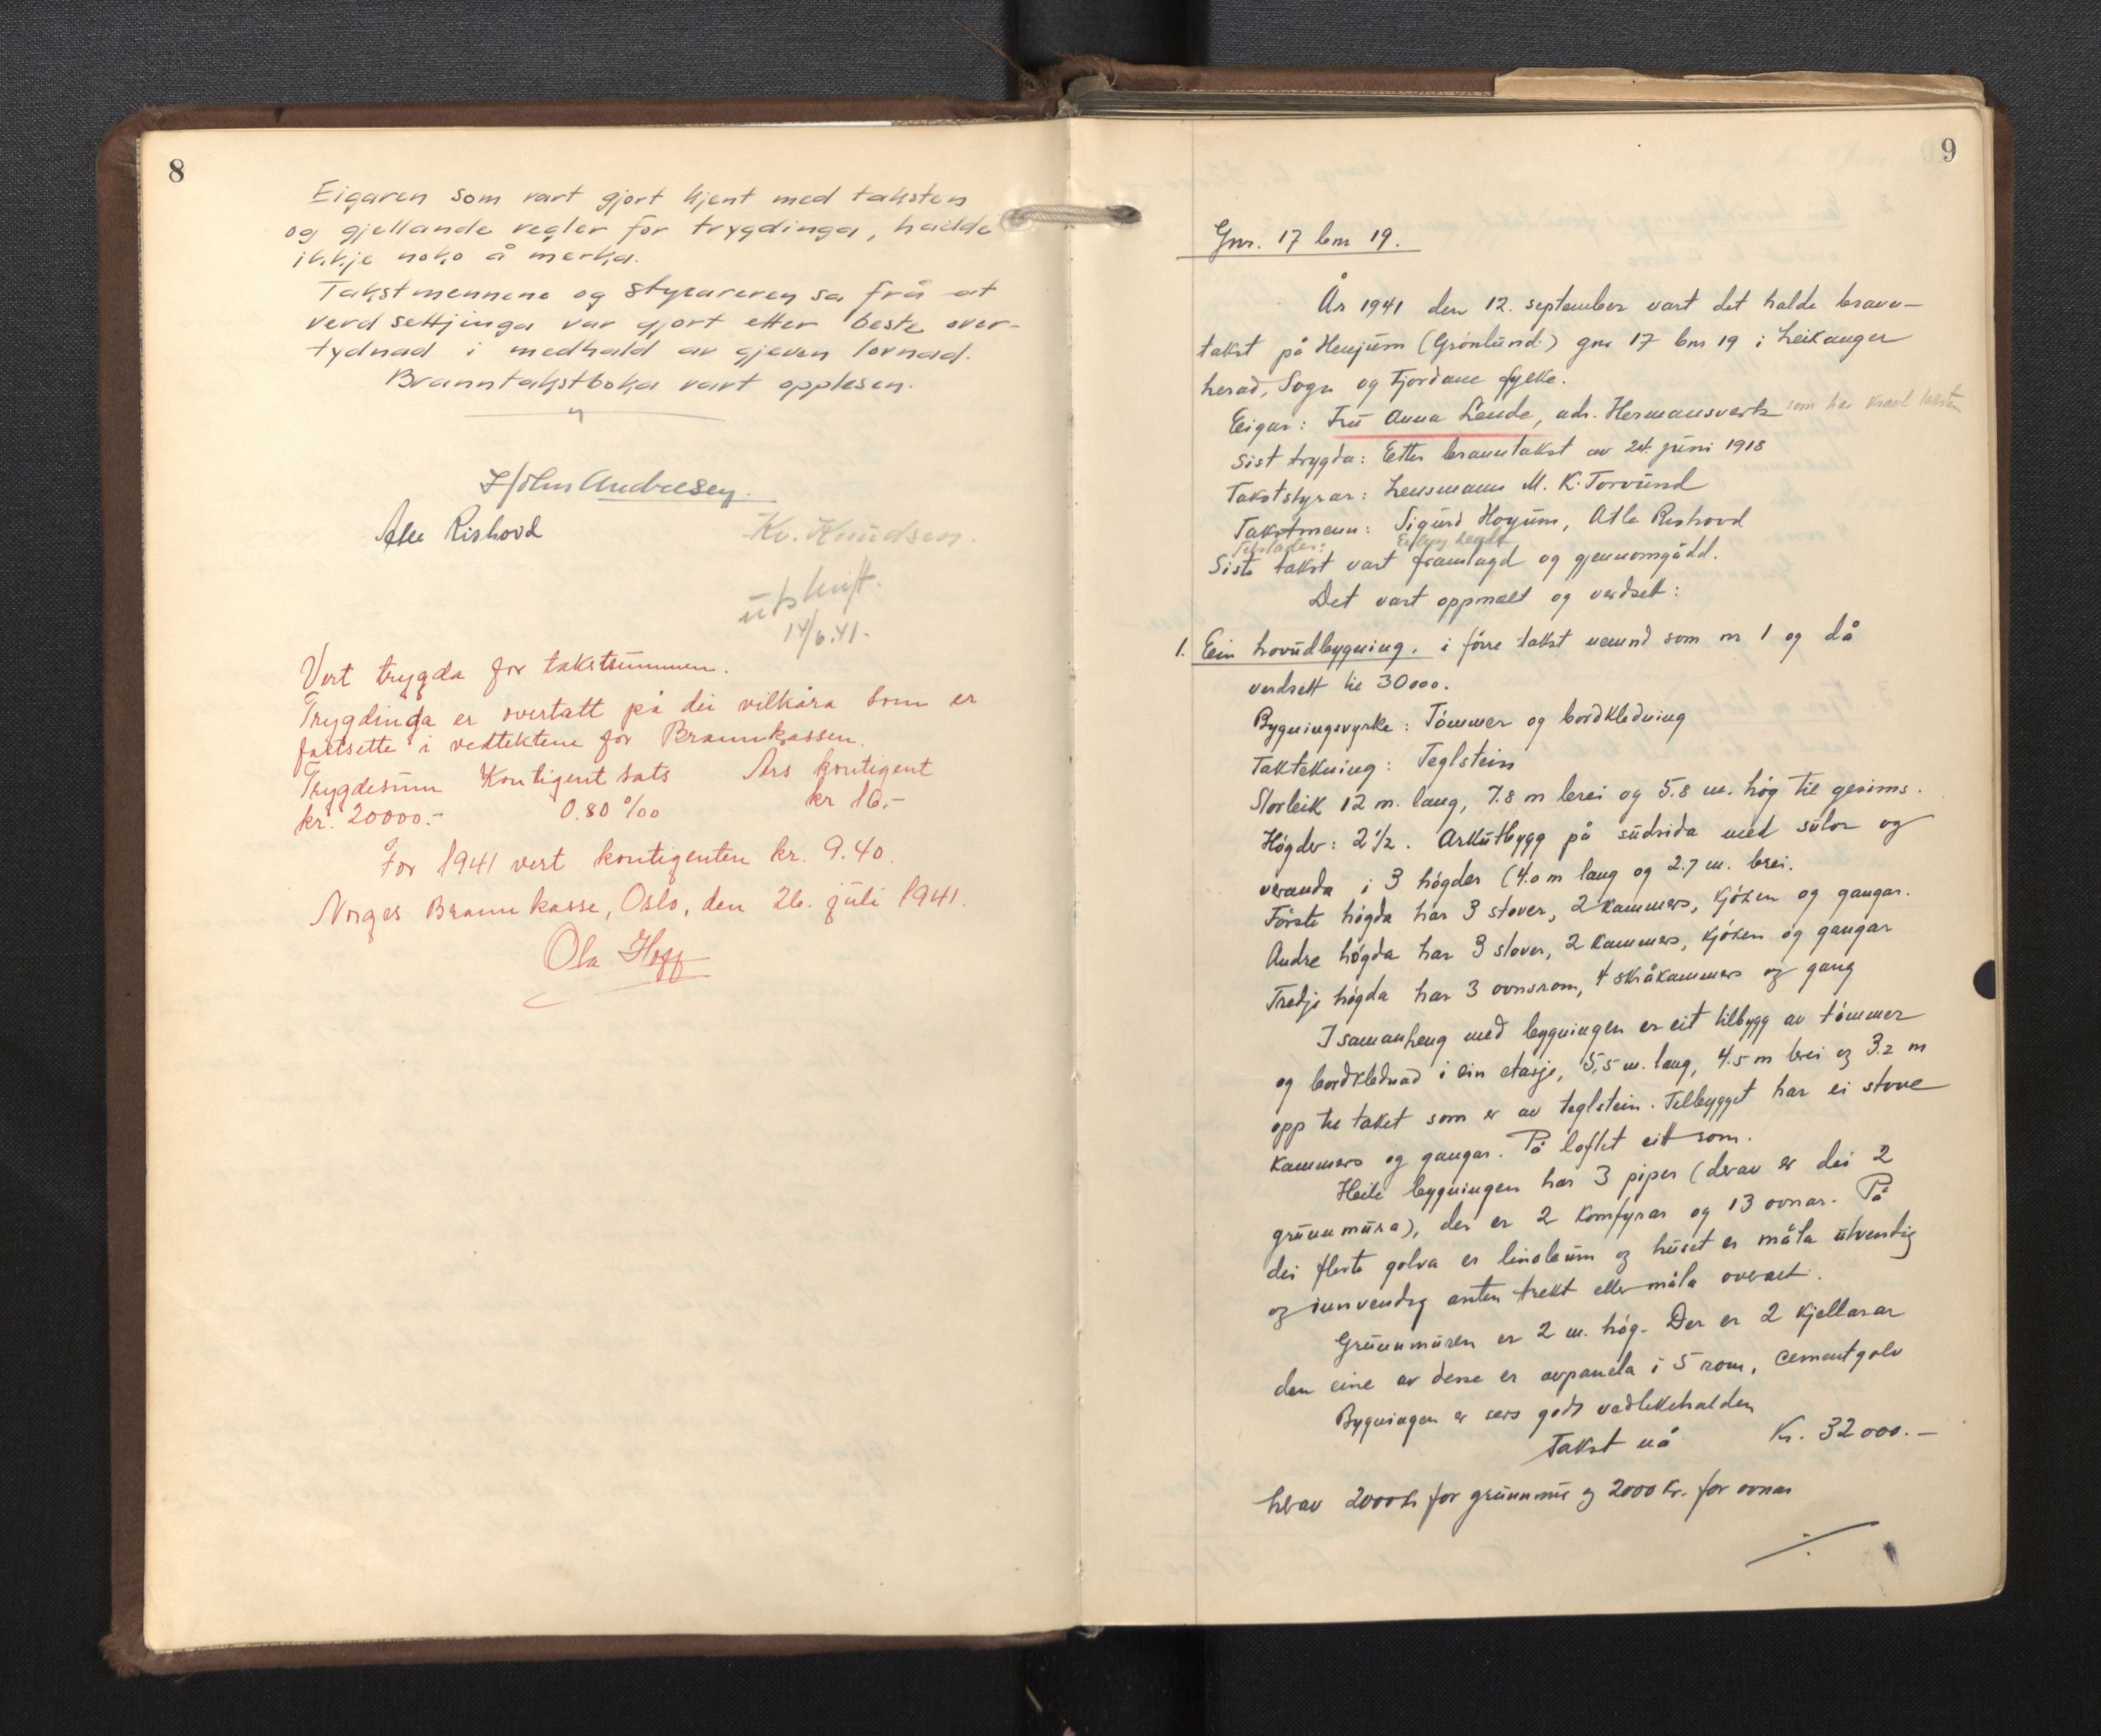 8
Eigaren som vart gjort kjent med taksten
og gjellande regler for trygdinga, hadde
ikkje noko å merka.
Takstmennene og styraren sa frå at
verdsettjinga var gjort etter beste over-
tydnad i medhald av gjeven lovnad.
Branntakstboka vart opplesen.
Hjalm Andresen.
Atle Rishovd
Kr. Knudsen.
utskrift.
14/6.41.
Vert trygda for takstsummen.
Trygdinga er overtatt på dei vilkåra som er
fastsette i vedtektene for Brannkassen.
Trygdesum Kontigent sats Års kontigent
kr. 20000.- 0.80 ‰ kr 16.-
For 1941 vert kontigenten kr. 9.40.
Norges Brannkasse, Oslo, den 26. juli 1941.
Ola Hoff
9
Gnr. 17 bnr 19.
År 1941 den 12. september vart det halde brann-
takst på Henjum (Grønlund) gnr 17 bnr 19 i Leikanger
herad, Sogn og Fjordane fylke.
Eigar: Fru Anna Lende, adr. Hermansverk som har kravt taksten
Sist trygda: Etter branntakst av 24. juni 1918
Takststyrar: Lensmann M. K. Torvund
Takstmenn: Sigurd Hoyum, Atle Rishovd
Tilstades: Erling Lende
Siste takst vart framlagd og gjennomgådd.
Det vart oppmælt og verdsett:
1. Ein hovudbygning, i førre takst nemnd som nr 1 og då
verdsett til 30000.
Bygningsvyrke: Tømmer og bordkledning
Taktekning: Teglstein
Storleik 12 m. lang, 7.8 m brei og 5.8 m. høg til gesims.
Høgder: 2 1/2. Arkutbygg på sudsida med sulor og
veranda i 3 høgder (4.0 m lang og 2.7 m. brei.
Første høgda har 3 stover, 2 kammers, kjøken og gangar.
Andre høgda har 3 stover, 2 kammers, kjøken og gangar
Tredje høgda har 3 ovnsrom, 4 skråkammers og gang
I samanheng med bygningen er eit tilbygg av tømmer
og bordklednad i ein etasje, 5,5 m. lang, 4.5 m brei og 3.2 m
opp til taket som er av teglstein. Tilbygget har ei stove
kammers og gangar. På loftet eit rom.
Heile bygningen har 3 piper (derav er dei 2
grunnmura), der er 2 komfyrar og 13 ovnar. På
dei fleste golva er linoleum og huset er måla utvendig
og innvendig anten trekt eller måla overalt.
Grunnmuren er 2 m. høg. Der er 2 kjellarar
den eine av desse er avpanela i 5 rom, cementgolv
Bygningen er sers godt vedlikehalden
Takst nå Kr. 32000.-
herav 2000 kr for grunnmur og 2000 kr. for ovnar